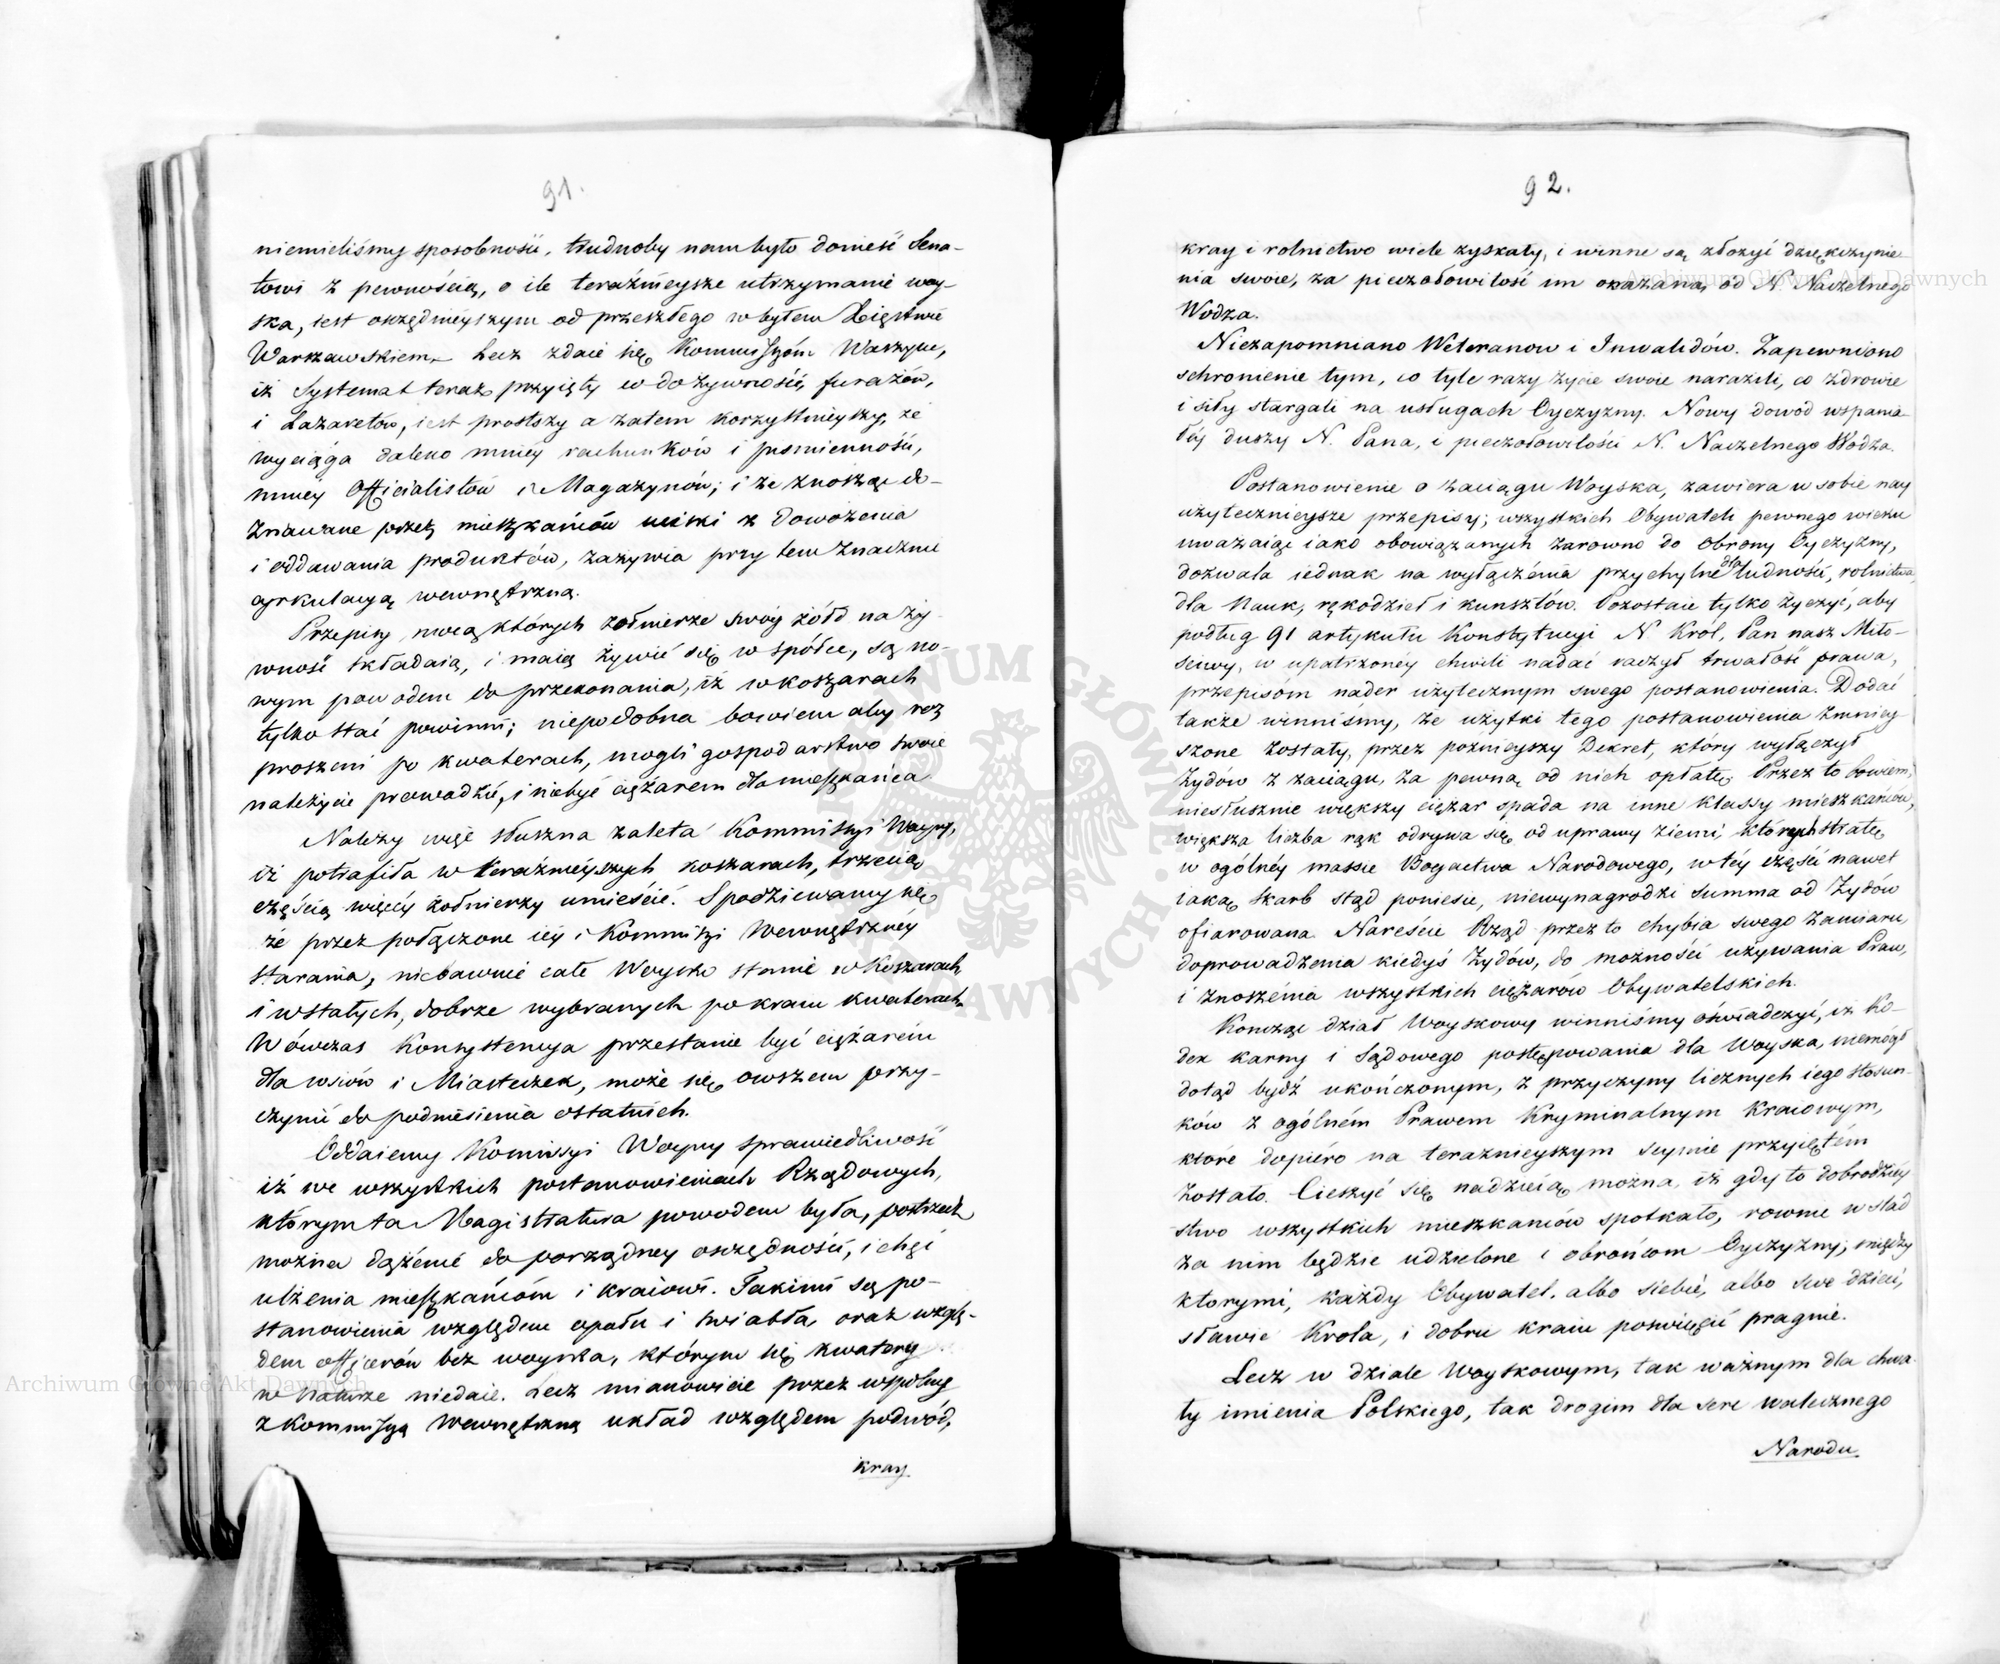 91.
niemieliśmy sposobności, trudnoby nam było donieść Sena-
towi z pewnością, o ile teraźnieysze utrzymanie woy-
ska, iest oszczędnieyszym od przeszłego w byłem Xięstwie
Warszawskiem. Lecz zdaie się Kommissyóm Waszym,
iż Systemat teraz przyięty w do żywności, furażów,
i Lazaretów, iest prostszy a zatem korzystnieyszy, że
wyciąga daleko mniéy rachunków i piśmienności,
mniéy Officialistów i Magazynów; i że znosząc do-
znawane przez mieszkańców uciski z dowożenia
i oddawania produktów, zażywia przy tem znacznie
cyrkulacyą wewnętrzną.
Przepisy, mocą których żołnierze swóy żółd na ży-
wność składaią, i maią żywić się w spółce, są no-
wym powodem do przekonania, iż w koszarach
tylko stać powinni; niepodobna bowiem aby roz
proszeni po kwaterach, mogli gospodarstwo swoie
należycie prowadzić, i niebyć ciężarem dla mieszkańca
Należy więc słuszna zaleta Kommissyi Woyny,
iż potrafiła w teraźnieyszych koszarach, trzecią
częścią więcéy żołnierzy umieścić. Spodziewamy się
że przez połączone iéy i Kommissyi Wewnętrznéy
starania, niebawnie całe Woysko stanie w Koszarach,
i w stałych, dobrze wybranych po kraiu kwaterach
Wówczas Konsystencya przestanie być ciężarem
dla wsiów i Miasteczek, może się owszem przy-
czynić do podniesienia ostatnich.
Oddaiemy Kommissyi Woyny sprawiedliwość
iż we wszystkich postanowieniach Rządowych,
którym ta Magistratura powodem była, postrzedz
można dążenie do porządney oszczędności, i chęć
ulżenia mieszkańcóm i kraiowi. Takimi są po-
stanowienia względem opału i światła, oraz wzglę-
dem officerów bez woyska, którym się kwatery
w naturze niedaie. Lecz mianowicie przez wspólny
z Kommissyą Wewnętrzną układ względem podwód,
kray
92.
kray i rolnictwo wiele zyskały, i winne są złożyć dziękczynie-
nia swoie, za pieczołowitość im okazaną od N. Naczelnego
Wodza.
Niezapomniano Weteranow i Inwalidów. Zapewniono
schronienie tym, co tyle razy życie swoie narazili, co zdrowie
i siły stargali na usługach Oyczyzny. Nowy dowód wspania-
łéj duszy N. Pana, i pieczołowitości N. Naczelnego Wodza.
Postanowienie o zaciągu Woyska, zawiera w sobie nay
użytecznieysze przepisy; wszystkich Obywateli pewnego wieku
uważaiąc iako obowiązanych zarowno do Obrony Oyczyzny,
dozwala iednak na wyłączénia przychylne dla ludności, rolnictwa
dla Nauk, rękodzieł i kunsztów. Pozostaie tylko życzyć, aby
podług 91 artykułu Konstytucyi N. Król, Pan nasz Miło-
ściwy, w upatrzonéy chwili nadać raczył trwałość prawa,
przepisóm nader użytecznym swego postanowienia. Dodać
także winniśmy, że użytki tego postanowienia zmniey-
szone zostały, przez poznieyszy Dekret, który wyłączył
Żydów z zaciągu, za pewną od nich opłatę. Przez to bowiem,
niesłusznie większy ciężar spada na inne klassy mieszkańców,
większa liczba rąk odrywa się od uprawy ziemi, których stratę
w ogólnéy massie Bogactwa Narodowego, w téy części nawet
iaką Skarb stąd poniesie, niewynagrodzi summa od Żydów
ofiarowana. Nareście Rząd przez to chybia swego zamiaru,
doprowadzenia kiedyś Żydów, do możności używania Praw,
i znoszénia wszystkich ciężarów Obywatelskich.
Kończąc dział Woyskowy winniśmy oświadczyć, iż Ko-
dex karny i Sądowego postępowania dla Woyska, niemógł
dotąd bydź ukończonym, z przyczyny licznych iego stosun-
ków z ogólném Prawem Kryminalnym Kraiowym,
które dopiéro na terazńieyszym seymie przyiętém
zostało. Cieszyć się nadzieią można, iż gdy to dobrodziéy
stwo wszystkich mieszkańców spotkało, rownie w ślad
za nim będzie udzielone i obrońcom Oyczyzny; między
ktorymi, każdy Obywatel, albo siebie, albo swe dzieci,
sławie Krola, i dobru kraiu poswięcić pragnie.
Lecz w dziale Woyskowym, tak ważnym dla chwa-
ły imienia Polskiego, tak drogim dla serc walecznego
Narodu
Archiwum Główne Akt Dawnych
Archiwum Główne Akt Dawnych
ARCHIWUM GŁÓWNE AKT DAWNYCH